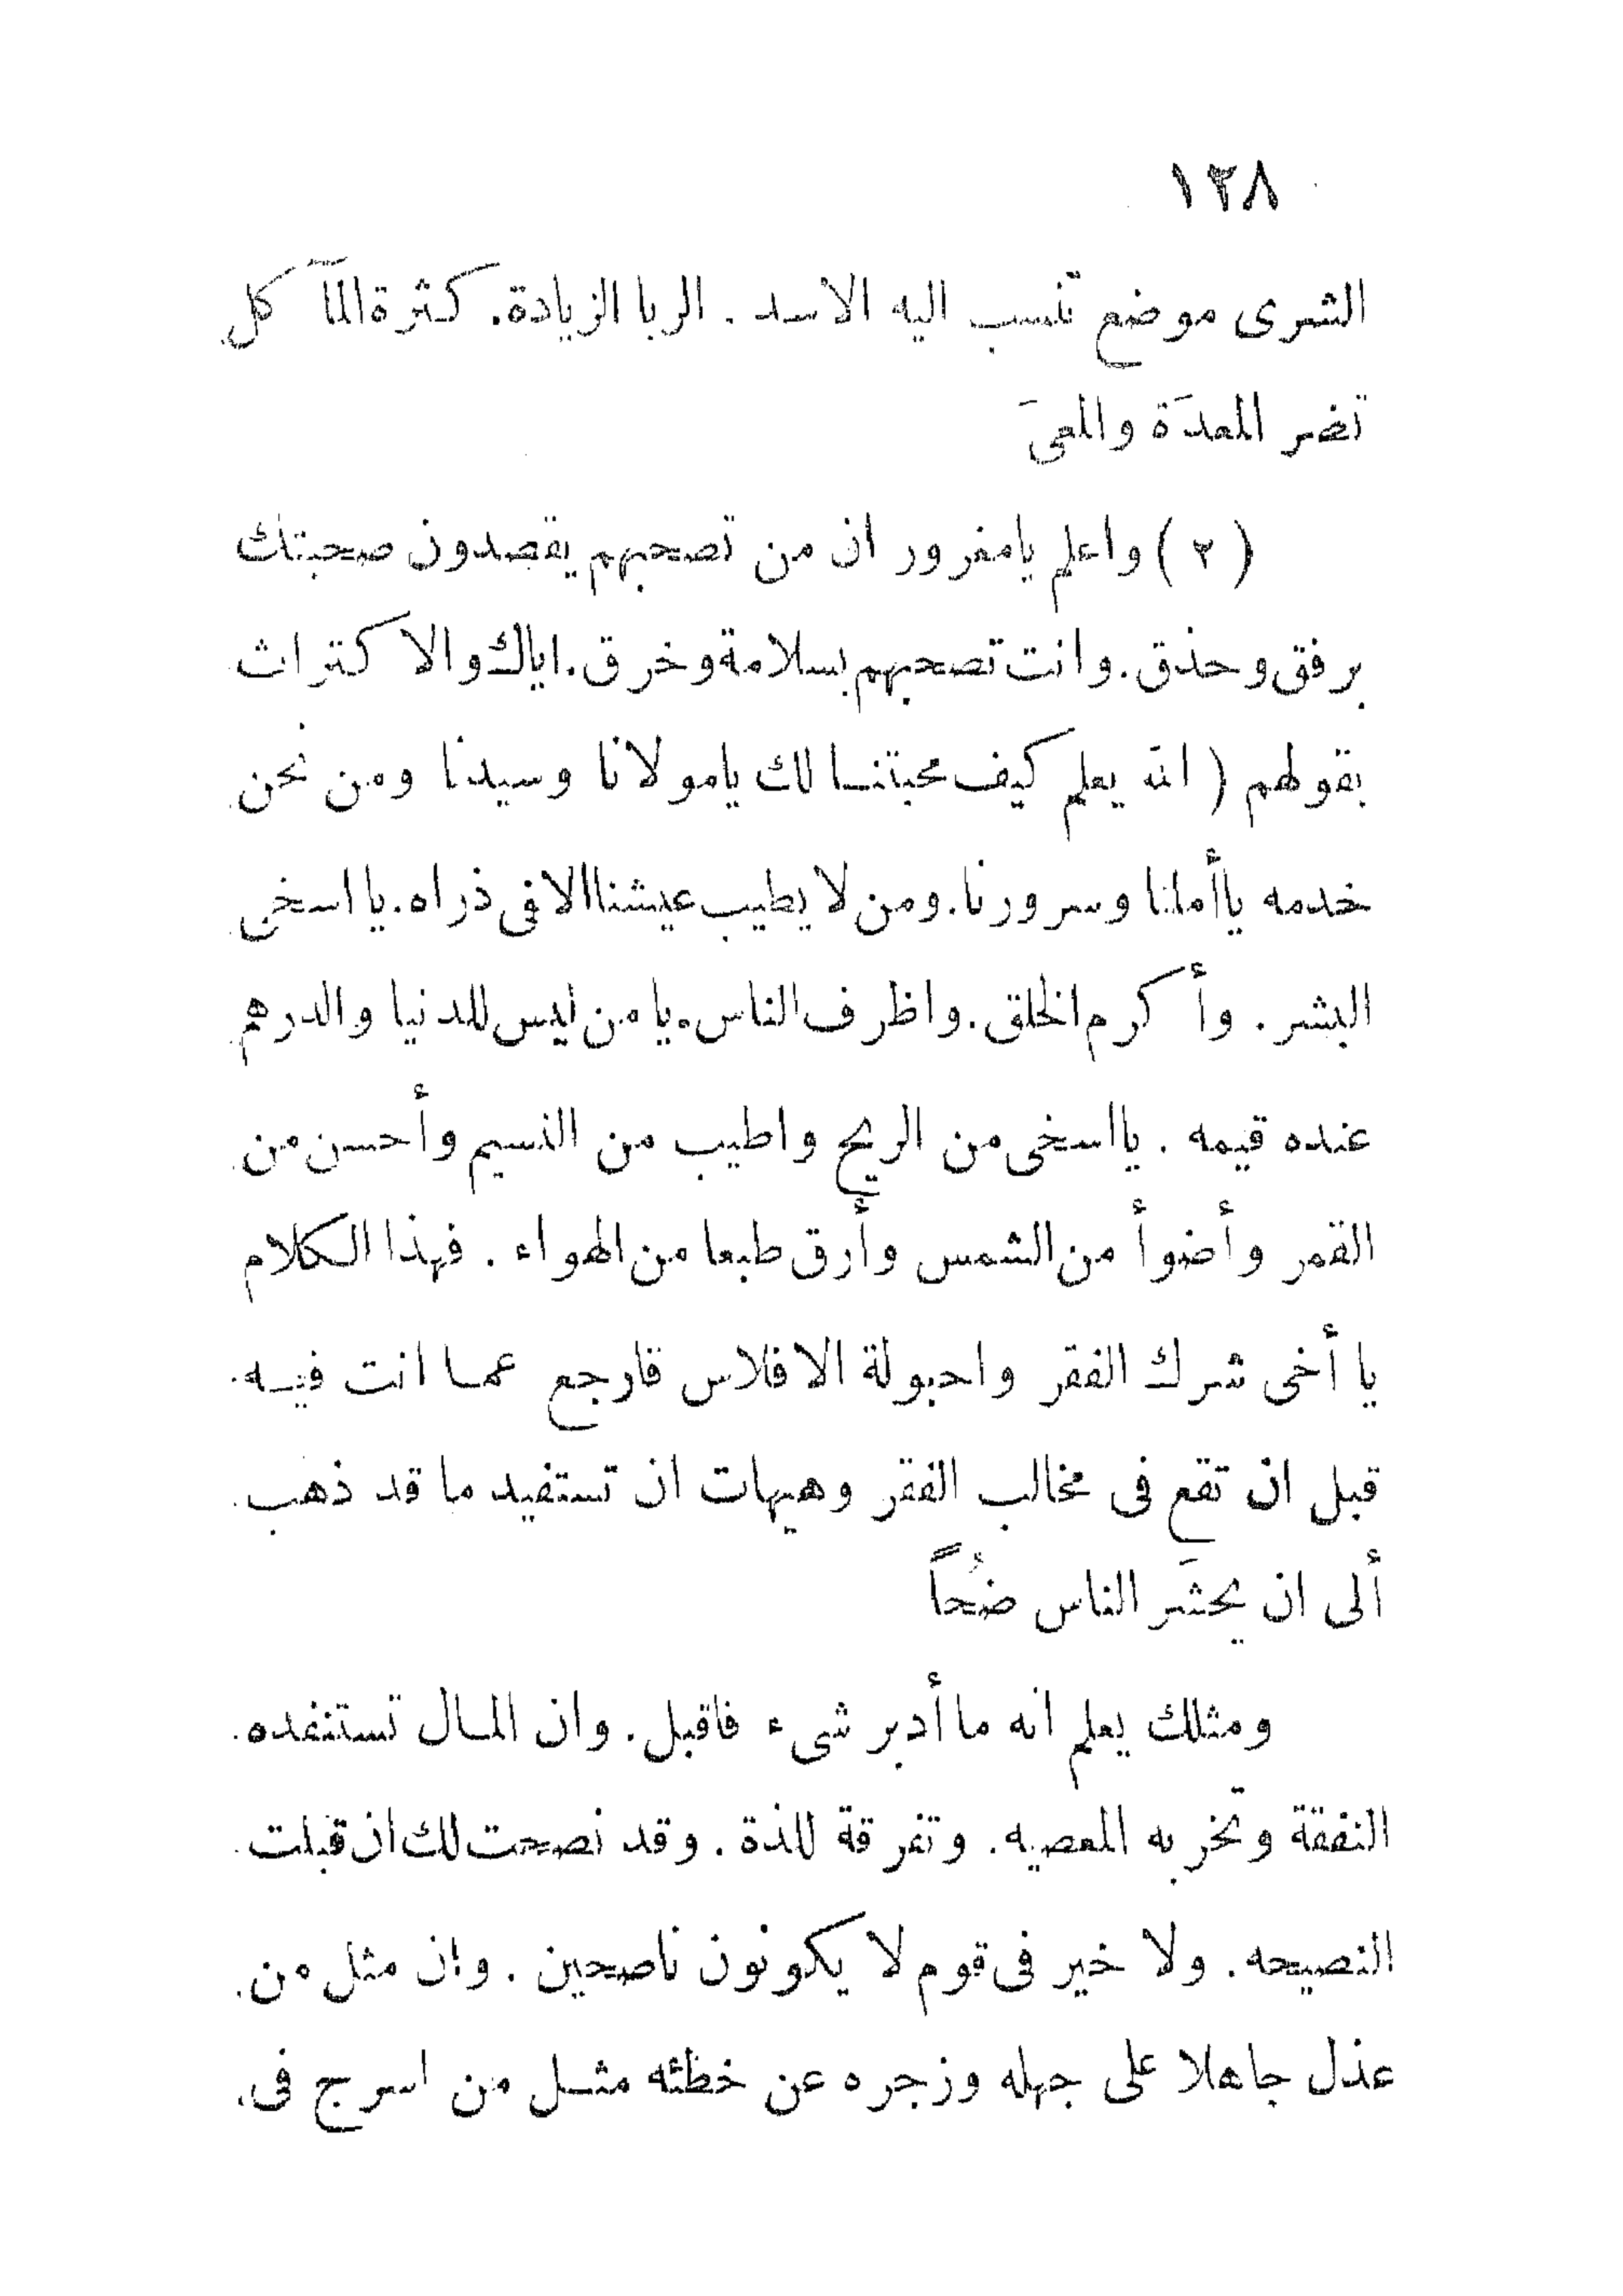 ١٢٨
الشرى موضع تنسب اليه الاسد . الربا الزيادة. كثرة المآ كل
تضر المعدَة والمعىَ
( ٢ ) واعلم يامغرور ان من تصحبهم يقصدون صحبتك
برفق وحذق. وانت تصحبهم بسلامة وخرق. اياك والاكتراث
بقولهم ( الله يعلم كيف محبتنا لك يامولانا وسيدنا ومن نحن
خدمه ياأملنا وسرورنا. ومن لا يطيب عيشنا الا فى ذراه. يااسخى
البشر . وأكرم الخلق. واظرف الناس. يامن ليس للدنيا والدرهم
عنده قيمه . يااسخى من الريح واطيب من النسيم وأحسن من
القمر وأضوأ من الشمس وأرق طبعا من الهواء . فهذا الكلام
يا أخى شرك الفقر واحبولة الافلاس فارجع عما انت فيه
قبل ان تقع فى مخالب الفقر وهيهات ان تستفيد ما قد ذهب
ألى ان يحشَر الناس ضُحاً
ومثلك يعلم انه ما أدبر شىء فاقبل. وان المال تستنفده
النفقة وتخر به المعصيه. وتفرقة للذة . وقد نصحت لك ان قبلت
النصيحه. ولا خير فى قوم لا يكونون ناصحين . وان مثل من
عذل جاهلا على جهله وزجره عن خطئه مثل من اسرج فى